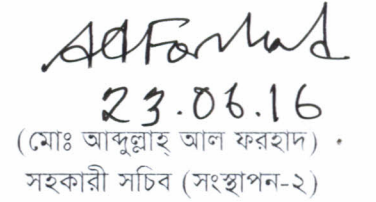 AAFarhad
23.06.16
(মোঃ আব্দুল্লাহ্ আল ফরহাদ)
সহকারী সচিব (সংস্থাপন-২)